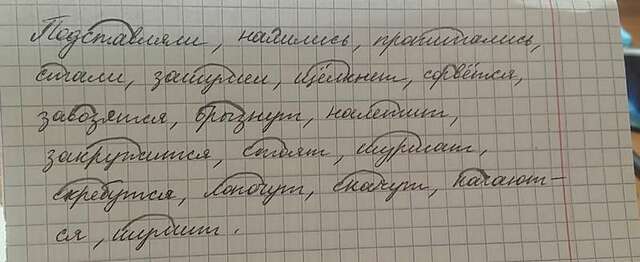 Подставляли, налились, пропитались,
стали, зашумел, щёлкнет, сорвётся,
завозятся, брызнут, налетит,
закружится, стоят, шуршат,
скребутся, лопочут, скачут, качают-
ся, шумит.